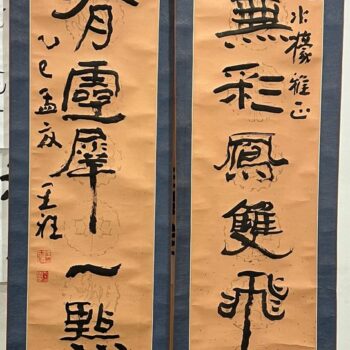 水檬雅正
無彩鳳雙飛
有靈犀一點
乙巳孟夏